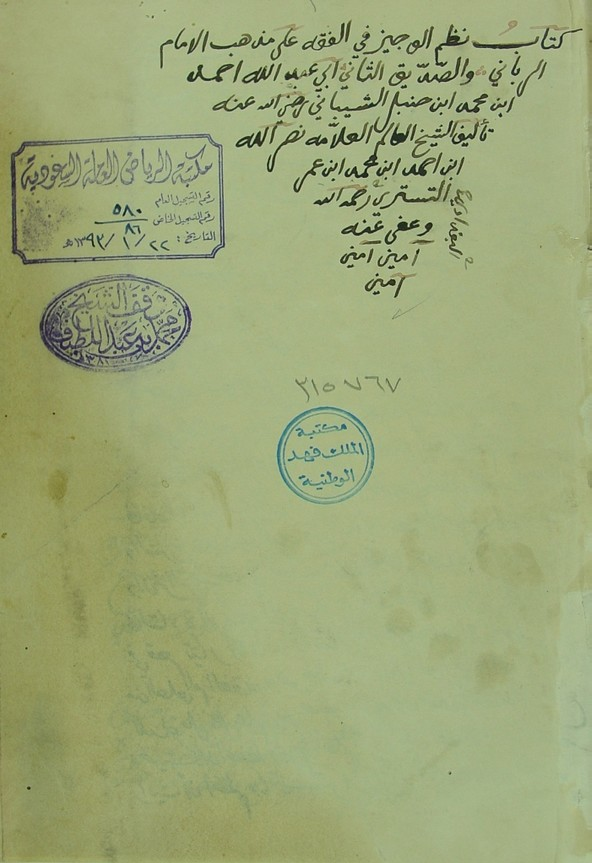 كتاب نظم الوجيز في الفقه على مذهب الامام
الرباني والصديق الثاني ابي عبد الله احمد
ابن محمد ابن حنبل الشيباني رضي الله عنه
تأليف الشيخ العالم العلامه نصر الله
ابن احمد ابن محمد ابن عمر
التستري رحمه الله
وعفى عنه
آمين آمين
آمين
البغدادي
مكتبة الرياض العامة السعودية
رقم التسجيل العام
٥٨٠
رقم التسجيل الخاص
٨٦
التاريخ: ٢٢ / ١ / ١٣٩٣هـ
وقف الشيخ
محمد بن عبد اللطيف
١٣٨١
٣١٥٧٦٧
مكتبة
الملك فهد
الوطنية